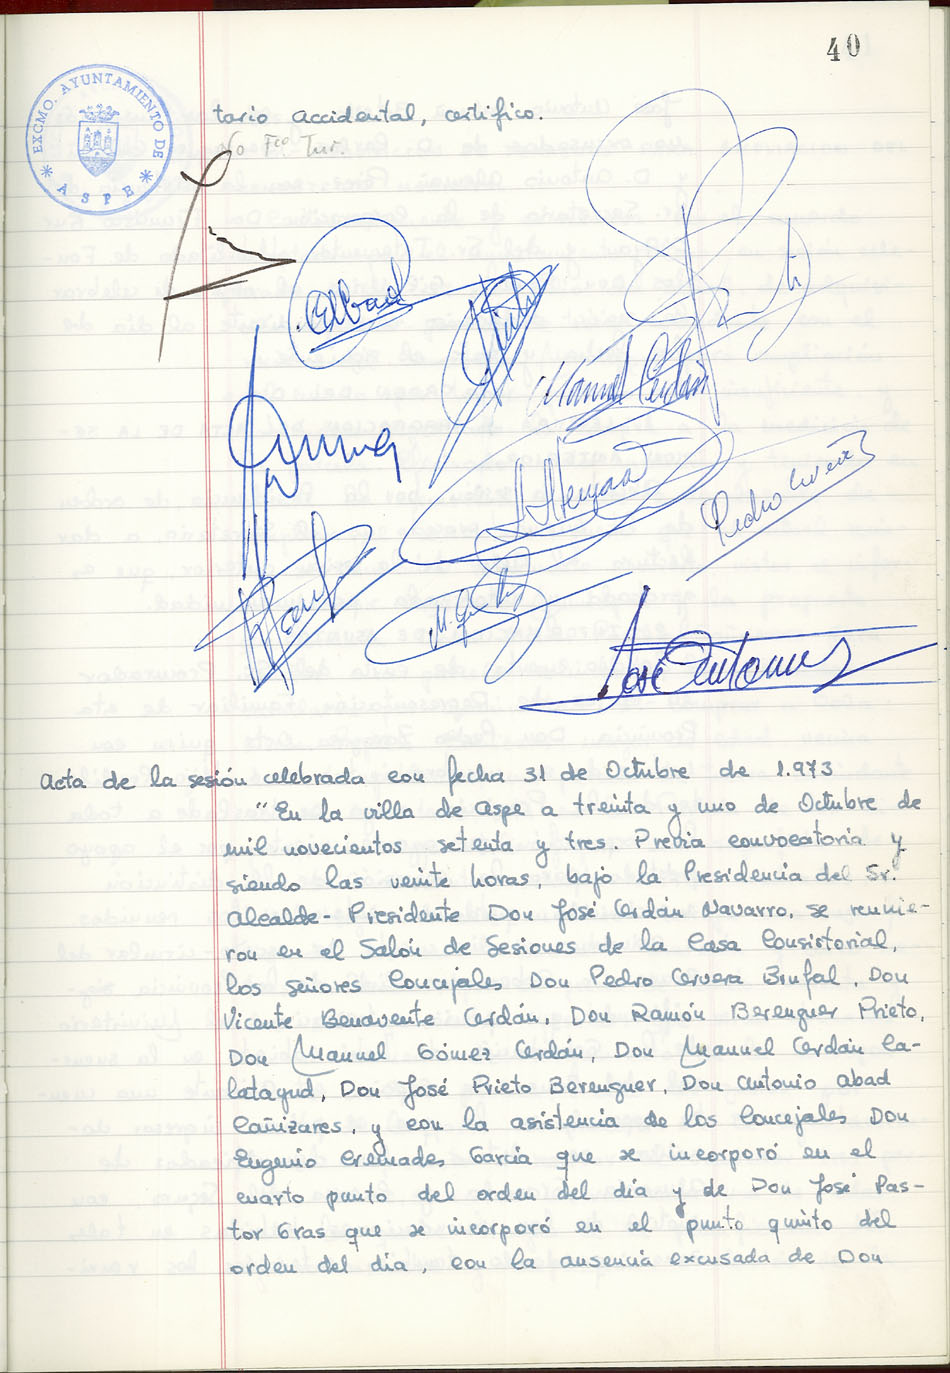 40
EXCMO. AYUNTAMIENTO DE
ASPE
tario accidental, certifico.
Fco Tur.
EAbad
Manuel Cerdán
Pedro Cervera
José Antonio
Acta de la sesión celebrada con fecha 31 de Octubre de 1.973
"En la villa de Aspe a treinta y uno de Octubre de
mil novecientos setenta y tres. Previa convocatoria y
siendo las veinte horas, bajo la Presidencia del Sr.
Alcalde-Presidente Don José Cerdán Navarro, se reunie-
ron en el Salón de Sesiones de la Casa Consistorial,
los señores Concejales Don Pedro Cervera Brufal, Don
Vicente Benavente Cerdán, Don Ramón Berenguer Prieto,
Don Manuel Gómez Cerdán, Don Manuel Cerdán Ca-
latayud, Don José Prieto Berenguer, Don Antonio Abad
Cañizares, y con la asistencia de los Concejales Don
Eugenio Cremades García que se incorporó en el
cuarto punto del orden del día y de Don José Pas-
tor Gras que se incorporó en el punto quinto del
orden del día, con la ausencia excusada de Don